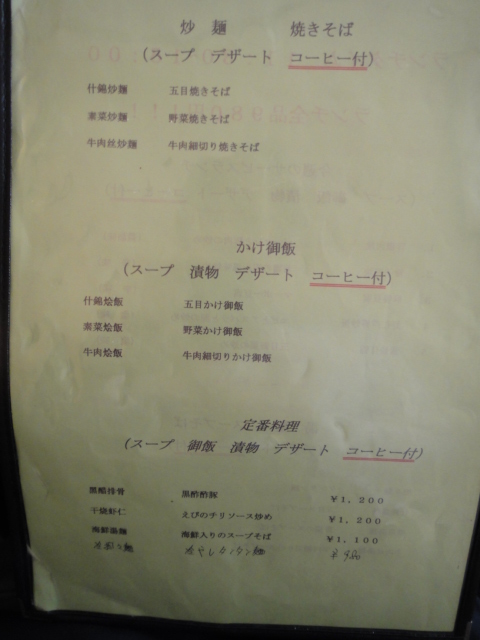 炒 麺 焼きそば
(スープ デザート コーヒー付)
什錦炒麺 五目焼きそば
素菜炒麺 野菜焼きそば
牛肉丝炒麺 牛肉細切り焼きそば
かけ御飯
(スープ 漬物 デザート コーヒー付)
什錦烩飯 五目かけ御飯
素菜烩飯 野菜かけ御飯
牛肉烩飯 牛肉細切りかけ御飯
定番料理
(スープ 御飯 漬物 デザート コーヒー付)
黒醋排骨 黒酢酢豚 ￥1,200
干烧虾仁 えびのチリソース炒め ￥1,200
海鮮湯麺 海鮮入りのスープそば ￥1,100
￥980